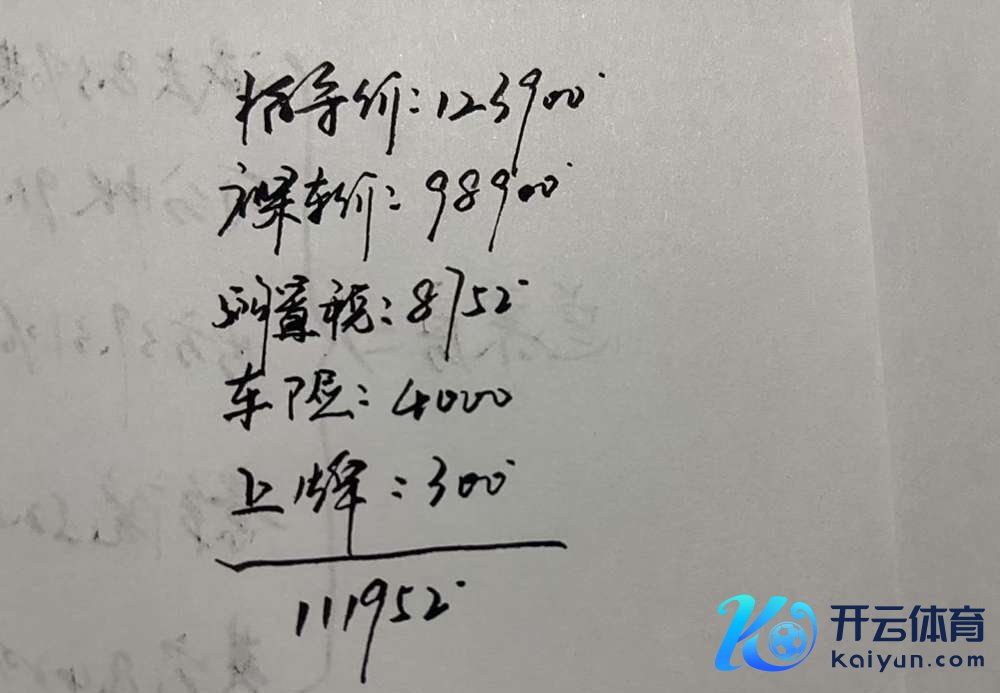 指导价：123900
裸车价：98900
购置税：8752
车险：4000
上牌：300
111952
开云体育
kaiyun.com